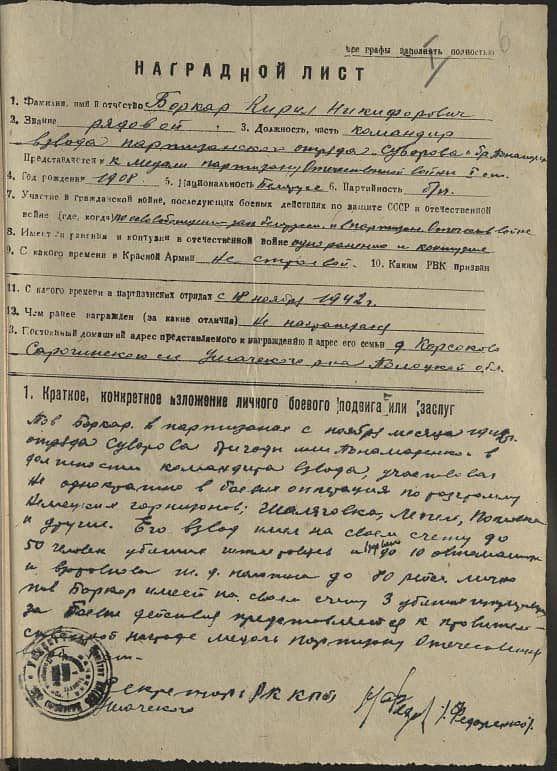 все графы заполнять полностью
6
НАГРАДНОЙ ЛИСТ
1. Фамилия, имя и отчество Боркар Кирил Никифорович
2. Звание рядовой 3. Должность, часть командир
взвода партизанского отряда Суворова бр. Пономаренко
Представляется к медали партизану Отечественной войны
4. Год рождения 1908. 5. Национальность Белорус 6. Партийность б/п.
7. Участие в гражданской войне, последующих боевых действиях по защите СССР и отечественной
войне (где, когда) и в партизан. Отечеств. войне
8. Имеет ли ранения и контузии в отечественной войне одно ранение и контузия
9. С какого времени в Красной Армии не строевой. 10. Каким РВК призван
11. С какого времени в партизанских отрядах с 18 ноября 1942 г.
12. Чем ранее награжден (за какие отличия) не награжден
13. Постоянный домашний адрес представляемого к награждению и адрес его семьи д. Корсаково
Сарочинского с/с Ушачского р-на Полоцкой обл.
1. Краткое, конкретное изложение личного боевого подвига или заслуг
Тов Боркар. в партизанах с ноября месяца 1942 г.
отряда Суворова бригады им Пономаренко в
должности командира взвода, участвовал
не однократно в боевых операциях по разгрому
Немецких гарнизонов: Лепел,
и другие. Его взвод имел на своем счету до
50 человек убитых и до 10 автомашин
и взорвано ж. д. полотна до 80 рельс. лично
тов Боркар имеет на своем счету 3 убитых
за боевые действия представляется к правитель-
ственной награде медаль партизану Отечественной
Секретарь РК КПб
Ушачского
Федоренко